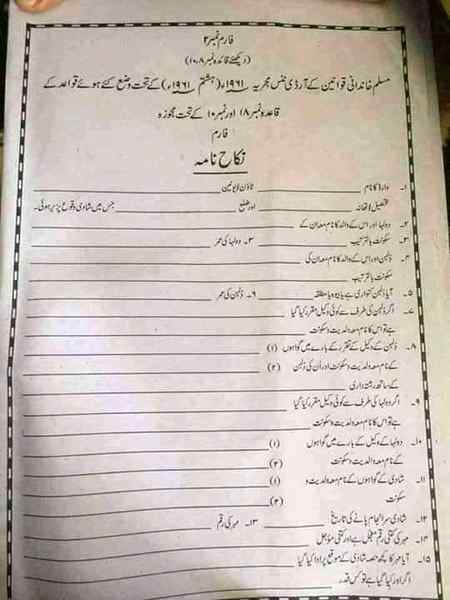 فارم نمبر ۲
(دیکھئے قاعدہ نمبر ۸، ۱۰)
مسلم خاندانی قوانین کے آرڈی ننس مجریہ ۱۹۶۱ء (ہشتم ۱۹۶۱ء) کے تحت وضع کئے ہوئے قواعد کے
قاعدہ نمبر ۱۸ اور نمبر ۱۰ کے تحت مجوزہ
فارم
نکاح نامہ
۱۔ وارڈ کا نام ٹاؤن / یونین
تحصیل / تھانہ اور ضلع جس میں شادی وقوع پزیر ہوئی۔
۲۔ دولہا اور اس کے والد کا نام معہ ان کے
۳۔ سکونت بالترتیب ۳۔ دولہا کی عمر
۴۔ دلہن اور اس کے والد کا نام معہ ان کی
سکونت بالترتیب
۵۔ آیا دلہن کنواری ہے یا بیوہ یا مطلقہ ۶۔ دلہن کی عمر
۷۔ اگر دلہن کی طرف سے کوئی وکیل مقرر کیا گیا
ہے تو اس کا نام معہ ولدیت و سکونت
۸۔ دلہن کے وکیل کے تقرر کے بارے میں گواہوں (۱)
کے نام معہ ولدیت و سکونت اور ان کی دلہن (۲)
کے ساتھ رشتہ داری
۹۔ اگر دولہا کی طرف سے کوئی وکیل مقرر کیا گیا
ہے تو اس کا نام معہ ولدیت و سکونت
۱۰۔ دولہا کے وکیل کے بارے میں گواہوں (۱)
کے نام معہ ولدیت و سکونت (۲)
۱۱۔ شادی کے گواہوں کے نام معہ ولدیت و (۱)
سکونت (۲)
۱۲۔ شادی سرانجام پانے کی تاریخ ۱۳۔ مہر کی رقم
۱۴۔ مہر کی کتنی رقم معجل ہے اور کتنی مؤجل
۱۵۔ آیا مہر کا کچھ حصہ شادی کے موقع پر ادا کیا گیا
اگر ادا کیا گیا ہے تو کس قدر